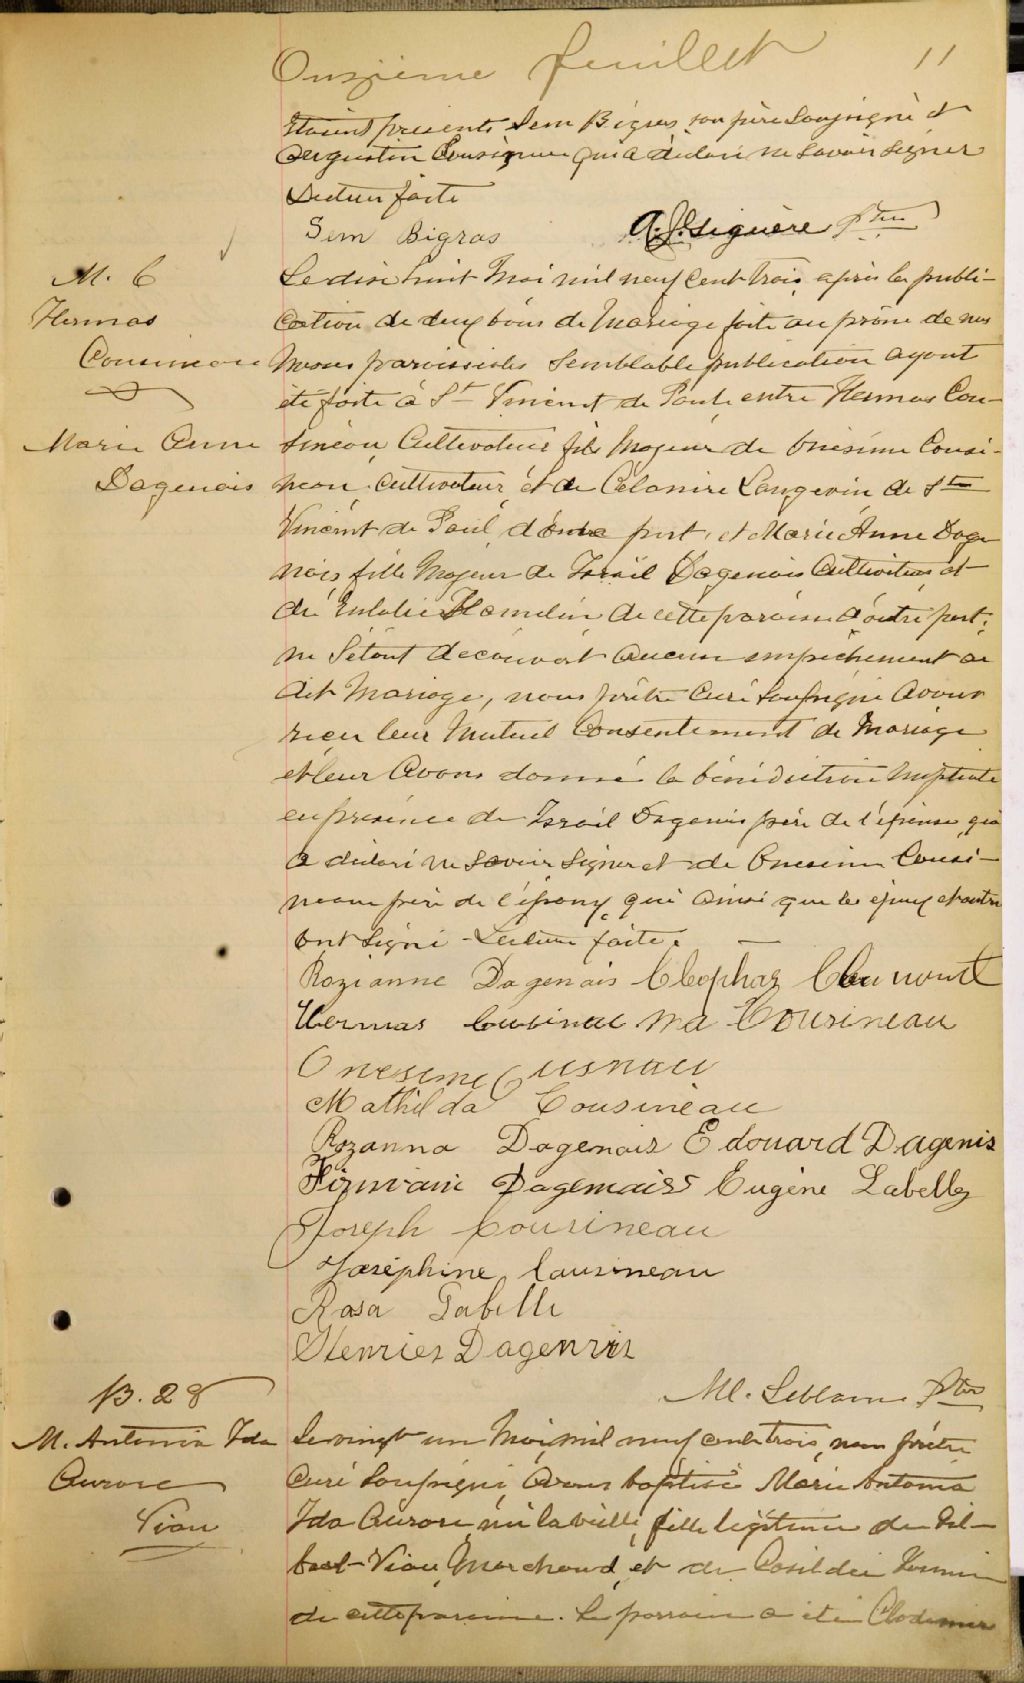 Onzième feuillet 11
Etaient présents Sem Bigras son père soussigné et
Augustin Cousineau qui a déclaré ne savoir signer
Lecture faite
Sem Bigras Ptre
M. 6
Hermas
Cousineau
Marie Anne
Dagenais
Le dix huit Mai mil neuf cent trois, après la publi-
cation de deux bans de Mariage faite au prône de nos
messes paroissiales semblable publication ayant
été faite à St Vincent de Paul, entre Hermas Cou-
sineau Cultivateur fils Majeur de Onésime Cousi-
neau cultivateur et de Célanire Langevin de St
Vincent de Paul, d'une part, et Marie Anne Dage
nais fille Majeur de Israil Dagenais Cultivateur et
de Eulalie Hamelin de cette paroisse d'autre part;
ne s'étant découvert aucun empêchement au
dit Mariage, nous prêtre Curé soussigné avons
reçu leur Mutuel Consentement de Mariage
et leur avons donné la bénédiction nuptiale
en présence de Israil Dagenais père de l'épouse qui
a déclaré ne savoir signer et de Onésime Cousi-
neau père de l'époux qui ainsi que les époux et autres
ont signé - Lecture faite.
Rozianne Dagenais Cleophas
Hermas Cousineau Cousineau
Onesime Cusnau
Mathilda Cousineau
Rozanna Dagenais Edouard Dagenis
Dagemaiss Eugène Labelle
Joseph Cousineau
Joséphine Cousineau
Rosa Labelle
Henries Dagenais
M. Leblanc Ptre
B. 28
M. Antonia Ida
Aurore
Viau
Le vingt un Mai, mil neuf cent trois, nous prêtre
Curé soussigné, avons baptisé Marie Antonia
Ida Aurore, née la veille, fille légitime de Dil-
bert Viau Marchand, et de
de cette paroisse. Le parrain a été Clodomir